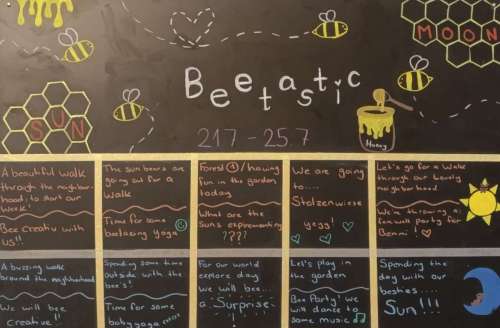 MOON
Beetastic
SUN
Honey
21.7 - 25.7
A beautiful walk
through the neighbor-
hood; to start our
Week!
Bee creativ with
us!!
The sun bears are
going out for a
walk
Time for some
beelaxing yoga
Forest ①/having
fun in the garden
today
What are the
Suns experimenting
????
We are going
to....
Stolzenwiese
yayy!
Let's go for a walk
through our lovely
neighborhood
We're throwing a
farewell party for
Benni!
A buzzing walk
around the neighborhood
We will bee
creative!
Spending some time
outside with the
bee's!
Time for some
babyyoga
For our world
explore day
we will bee...
a Surprise
!
Let's play in
the garden
Bee Party! we
will dance to
some music
Spending the
day with our
besties....
Sun!!!